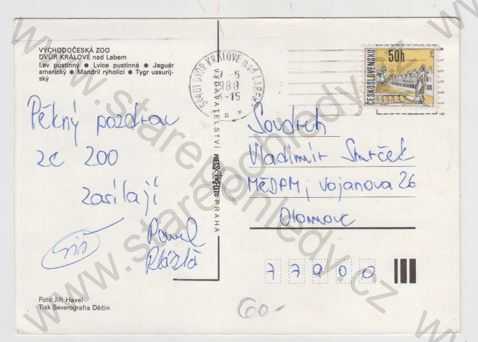 VÝCHODOČESKÁ ZOO
DVŮR KRÁLOVÉ nad Labem
Lev pustinný • Lvice pustinná • Jaguár
americký • Mandril rýholící • Tygr ussurij-
ský
Pěkný pozdrav
ze ZOO
zasílají
Pavel
Foto Jiří Havel
Tisk Severografia Děčín
PRAHA
DVŮR KRÁLOVÉ NAD LABEM
50h
ČESKOSLOVENSKO
Soudruh
Vladimír Smrček
MěDPM, Vojanova 26
Olomouc
77900
60-
www.starepohledy.cz